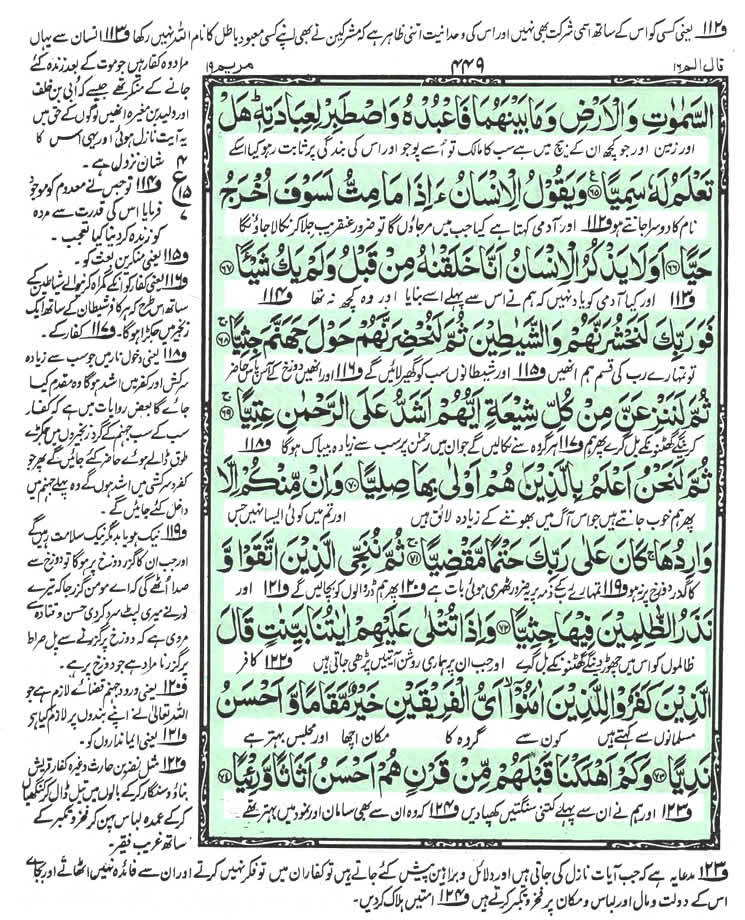 و۱۱۲ یعنی کسی کو اس کے ساتھ اسمی شرکت بھی نہیں اور اس کی وحدانیت اتنی ظاہر ہے کہ مشرکین نے بھی اپنے کسی معبود باطل کا نام اللہ نہیں رکھا و۱۱۳ انسان سے یہاں
قال الم ۱۶
۴۴۹
مریم ۱۹
السَّمٰوٰتِ وَالْاَرْضِ وَمَا بَيْنَهُمَا فَاعْبُدْهُ وَاصْطَبِرْ لِعِبَادَتِهٖ ؕ هَلْ
اور زمین اور جو کچھ ان کے بیچ میں ہے سب کا مالک تو اُسے پوجو اور اس کی بندگی پر ثابت رہو کیا اسکے
تَعْلَمُ لَهٗ سَمِيًّا ﴿۶۵﴾ وَيَقُوْلُ الْاِنْسَانُ ءَاِذَا مَا مِتُّ لَسَوْفَ اُخْرَجُ
نام کا دوسرا جانتے ہو و۱۱۲ اور آدمی کہتا ہے کیا جب میں مر جاؤں گا تو ضرور عنقریب جلا کر نکالا جاؤں گا
حَيًّا ﴿۶۶﴾ اَوَلَا يَذْكُرُ الْاِنْسَانُ اَنَّا خَلَقْنٰهُ مِنْ قَبْلُ وَلَمْ يَكُ شَيْـًٔا ﴿۶۷﴾
و۱۱۳ اور کیا آدمی کو یاد نہیں کہ ہم نے اس سے پہلے اسے بنایا اور وہ کچھ نہ تھا و۱۱۴
فَوَرَبِّكَ لَنَحْشُرَنَّهُمْ وَالشَّيٰطِيْنَ ثُمَّ لَنُحْضِرَنَّهُمْ حَوْلَ جَهَنَّمَ جِثِيًّا ﴿۶۸﴾
تو تمہارے رب کی قسم ہم انھیں و۱۱۵ اور شیطانوں سب کو گھیر لائیں گے و۱۱۶ اور انھیں دوزخ کے آس پاس حاضر
ثُمَّ لَنَنْزِعَنَّ مِنْ كُلِّ شِيْعَةٍ اَيُّهُمْ اَشَدُّ عَلَى الرَّحْمٰنِ عِتِيًّا ﴿۶۹﴾
کرینگے گھٹنوں کے بل گرے پھر ہم و۱۱۷ ہر گروہ سے نکالیں گے جو ان میں رحمٰن پر سب سے زیادہ بیباک ہوگا و۱۱۸
ثُمَّ لَنَحْنُ اَعْلَمُ بِالَّذِيْنَ هُمْ اَوْلٰى بِهَا صِلِيًّا ﴿۷۰﴾ وَاِنْ مِّنْكُمْ اِلَّا
پھر ہم خوب جانتے ہیں جو اس آگ میں بھوننے کے زیادہ لائق ہیں اور تم میں کوئی ایسا نہیں جس
وَارِدُهَا ۚ كَانَ عَلٰى رَبِّكَ حَتْمًا مَّقْضِيًّا ﴿۷۱﴾ ثُمَّ نُنَجِّى الَّذِيْنَ اتَّقَوْا وَّ
کا گذر دوزخ پر نہ ہو و۱۱۹ تمہارے رب کے ذمہ پر یہ ضرور ٹھہری ہوئی بات ہے و۱۲۰ پھر ہم ڈر والوں کو بچالیں گے و۱۲۱ اور
نَذَرُ الظّٰلِمِيْنَ فِيْهَا جِثِيًّا ﴿۷۲﴾ وَاِذَا تُتْلٰى عَلَيْهِمْ اٰيٰتُنَا بَيِّنٰتٍ قَالَ
ظالموں کو اس میں چھوڑ دینگے گھٹنوں کے بل گرے اور جب ان پر ہماری روشن آیتیں پڑھی جاتی ہیں و۱۲۲ کافر
الَّذِيْنَ كَفَرُوْا لِلَّذِيْنَ اٰمَنُوْٓا اَىُّ الْفَرِيْقَيْنِ خَيْرٌ مَّقَامًا وَّاَحْسَنُ
مسلمانوں سے کہتے ہیں کون سے گروہ کا مکان اچھا اور مجلس بہتر ہے
نَدِيًّا ﴿۷۳﴾ وَكَمْ اَهْلَكْنَا قَبْلَهُمْ مِّنْ قَرْنٍ هُمْ اَحْسَنُ اَثَاثًا وَّرِءْيًا ﴿۷۴﴾
و۱۲۳ اور ہم نے ان سے پہلے کتنی سنگتیں کھپا دیں و۱۲۴ کہ وہ ان سے بھی سامان اور نمود میں بہتر تھے
مراد وہ کفار ہیں جو موت کے بعد زندہ کئے
جانے کے منکر تھے جیسے کہ اُبی بن خلف
اور ولید بن مغیرہ انھیں لوگوں کے حق میں
یہ آیت نازل ہوئی اور یہی اس کا
شان نزول ہے۔
ع ۴ ۱۵ ۷
و۱۱۴ تو جس نے معدوم کو موجود
فرمایا اس کی قدرت سے مردہ
کو زندہ کر دینا کیا تعجب۔
و۱۱۵ یعنی منکرین بعث کو۔
و۱۱۶ یعنی کفار کو انکے گمراہ کرنیوالے شیاطین کے
ساتھ اس طرح کہ ہر کافر شیطان کے ساتھ ایک
زنجیر میں جکڑا ہوگا۔ و۱۱۷ کفار کے۔
و۱۱۸ یعنی دخول نار میں جو سب سے زیادہ
سرکش اور کفر میں اشد ہوگا وہ مقدم کیا
جائے گا بعض روایات میں ہے کہ کفار
سب کے سب جہنم کے گرد زنجیروں میں جکڑے
طوق ڈالے ہوئے حاضر کئے جائیں گے پھر جو
کفر و سرکشی میں اشد ہوں گے وہ پہلے جہنم میں
داخل کئے جائیں گے۔
و۱۱۹ نیک ہو یا بد مگر نیک سلامت رہیں گے
اور جب ان کا گزر دوزخ پر ہوگا تو دوزخ سے
صدا اُٹھے گی کہ اے مومن گزر جا کہ تیرے
نور نے میری لپٹ سرد کر دی حسن و قتادہ سے
مروی ہے کہ دوزخ پر گزرنے سے پل صراط
پر گزرنا مراد ہے جو دوزخ پر ہے۔
و۱۲۰ یعنی ورود جہنم قضائے لازم ہے جو
اللہ تعالیٰ نے اپنے بندوں پر لازم کیا ہے
و۱۲۱ یعنی ایمانداروں کو۔
و۱۲۲ مثل نضر بن حارث وغیرہ کفار قریش
بناؤ سنگار کر کے بالوں میں تیل ڈال کر کنگھیاں
کر کے عمدہ لباس پہن کر فخر و تکبر کے
ساتھ غریب فقیر۔
و۱۲۳ مدعا یہ ہے کہ جب آیات نازل کی جاتی ہیں اور دلائل و براہین پیش کئے جاتے ہیں تو کفار ان میں تو فکر نہیں کرتے اور ان سے فائدہ نہیں اٹھاتے اور بجائے
اس کے دولت و مال اور لباس و مکان پر فخر و تکبر کرتے ہیں و۱۲۴ امتیں ہلاک کر دیں۔